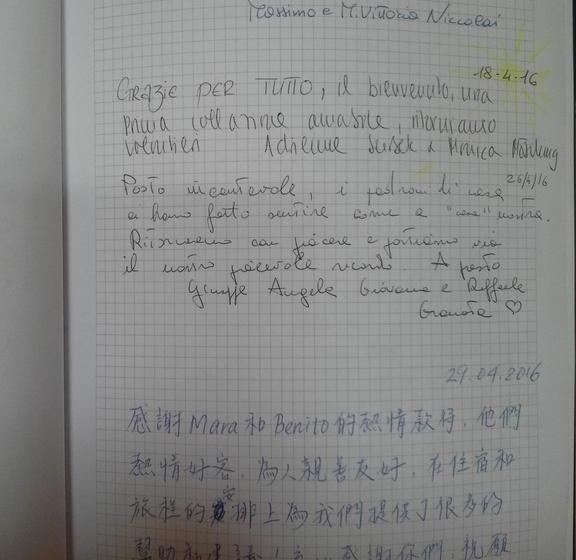 Massimo e M. Vittoria Niccolai
18-4-16
Grazie PER TUTTO, il bienvenuto, una
Adrienne & Monica
Posto incantevole, i padroni di casa 26/4/16
ci hanno fatto sentire come a "casa" nostra.
Ritorneremo con piacere e portiamo via
il nostro piacevole ricordo. A presto
Giuseppe Angela Giovanna e Raffaele
♡
29.04.2016
感謝Mara和Benito的熱情款待,他們
熱情好客,為人親善友好,在住宿和
旅程的安排上為我們提供了很多的
幫助和建議!